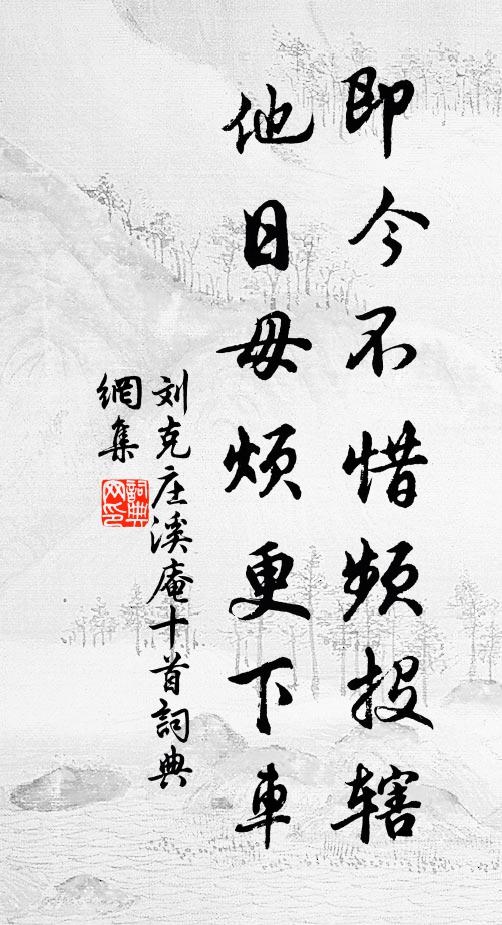 即今不惜频投辖
他日毋烦更下車
刘克庄溪庵十首詞典
網集
詞典网印